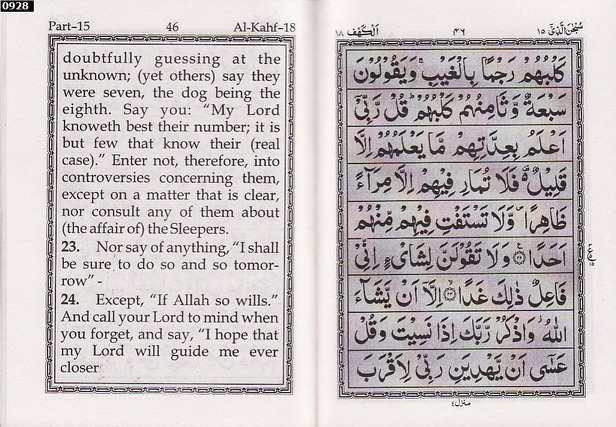 0928
Part–15 46 Al-Kahf–18
doubtfully guessing at the
unknown; (yet others) say they
were seven, the dog being the
eighth. Say you: “My Lord
knoweth best their number; it is
but few that know their (real
case).” Enter not, therefore, into
controversies concerning them,
except on a matter that is clear,
nor consult any of them about
(the affair of) the Sleepers.
23. Nor say of anything, “I shall
be sure to do so and so tomor-
row” -
24. Except, “If Allah so wills.”
And call your Lord to mind when
you forget, and say, “I hope that
my Lord will guide me ever
closer
سُبْحٰنَ الَّذِیْۤ ١٥ ٤٦ اَلْكَهْف ١٨
كَلْبُهُمْ رَجْمًۢا بِالْغَیْبِ ۚ وَیَقُوْلُوْنَ
سَبْعَةٌ وَّثَامِنُهُمْ كَلْبُهُمْ ؕ قُلْ رَّبِّیْۤ
اَعْلَمُ بِعِدَّتِهِمْ مَّا یَعْلَمُهُمْ اِلَّا
قَلِیْلٌ ۫ فَلَا تُمَارِ فِیْهِمْ اِلَّا مِرَآءً
ظَاهِرًا ۪ وَّلَا تَسْتَفْتِ فِیْهِمْ مِّنْهُمْ
اَحَدًا ﴿٢٢﴾ وَلَا تَقُوْلَنَّ لِشَایْءٍ اِنِّیْ
فَاعِلٌ ذٰلِكَ غَدًا ﴿٢٣﴾ اِلَّاۤ اَنْ یَّشَآءَ
اللّٰهُ ؗ وَاذْكُرْ رَّبَّكَ اِذَا نَسِیْتَ وَقُلْ
عَسٰۤی اَنْ یَّهْدِیَنِ رَبِّیْ لِاَقْرَبَ
منزل٤